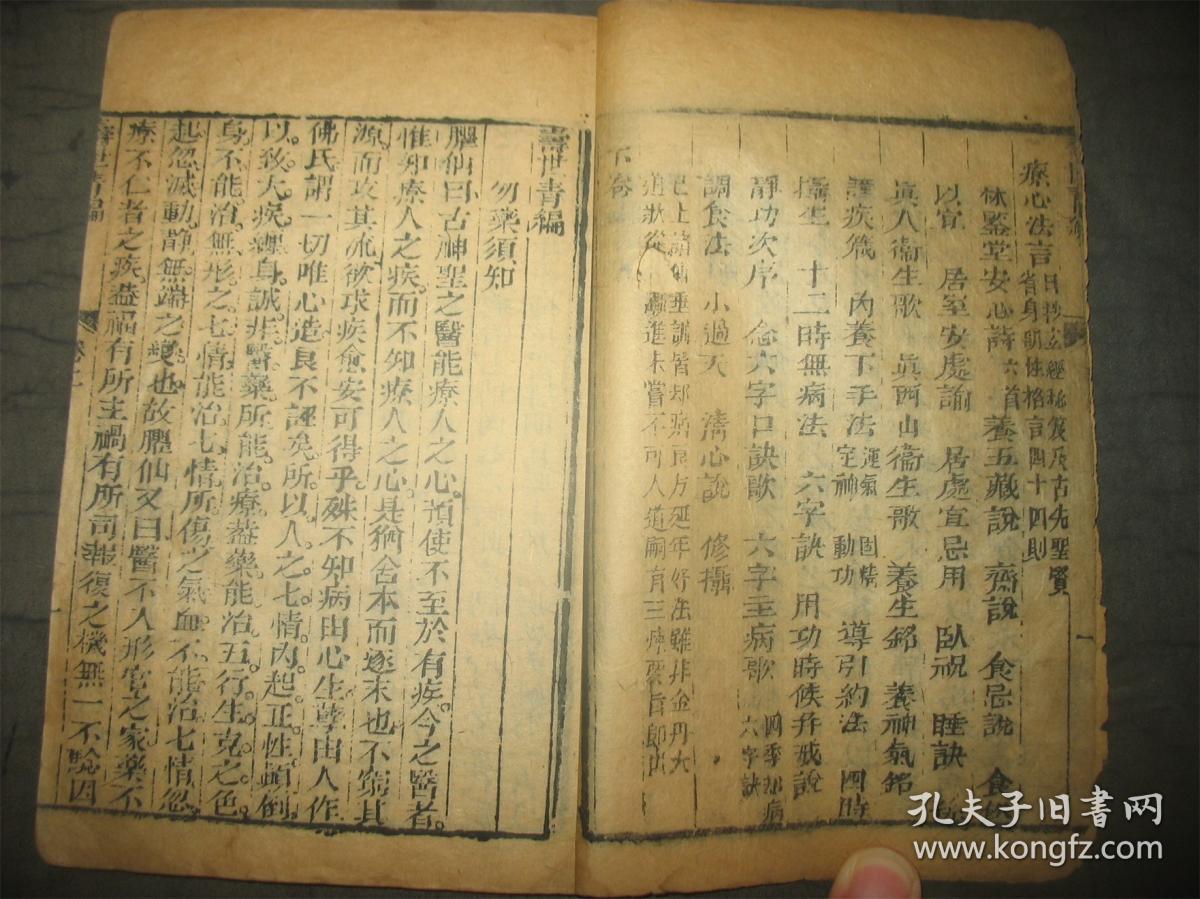 療心法言
省身朝夕格言四十四則
休盦堂安心詩 六首 養五藏說 齋說 食忌說 食
以宜 居室安處論 居處宜忌用 臥視 睡訣
真人衞生歌 真西山衞生歌 養生銘 養神氣銘
護疾箴 內養下手法 運氣 固精 定神 動功 導引約法 四時
攝生 十二時無病法 六字訣 用功時候并戒說
靜功次序 念六字口訣歌 六字主病歌 四季却病 六字訣
調食法 小過天 清心說 修攝
已上諸僊垂訓皆却病良方延年好法雖非金丹大
道然從 進未嘗不可人道嗣有三
下卷
壽世青編
勿藥須知
臞仙曰古神聖之醫能療人之心預使不至於有疾今之醫者
惟知療人之疾而不知療人之心是猶舍本而逐末也不窮其
源而攻其流欲求疾愈安可得乎殊不知病由心生孽由人作
佛氏謂一切唯心造良不誣矣所以人之七情內起正性顛倒
以致大疾纏身誠非醫藥所能治療蓋藥能治五行生克之色
身不能治無形之七情能治七情所傷之氣血不能治七情忽
起忽滅動靜無端之變也故臞仙又曰醫不入形官之家藥不
療不仁者之疾蓋福有所主禍有所司報復之機無一不驗因
壽世青編
一
孔夫子旧书网
www.kongfz.com